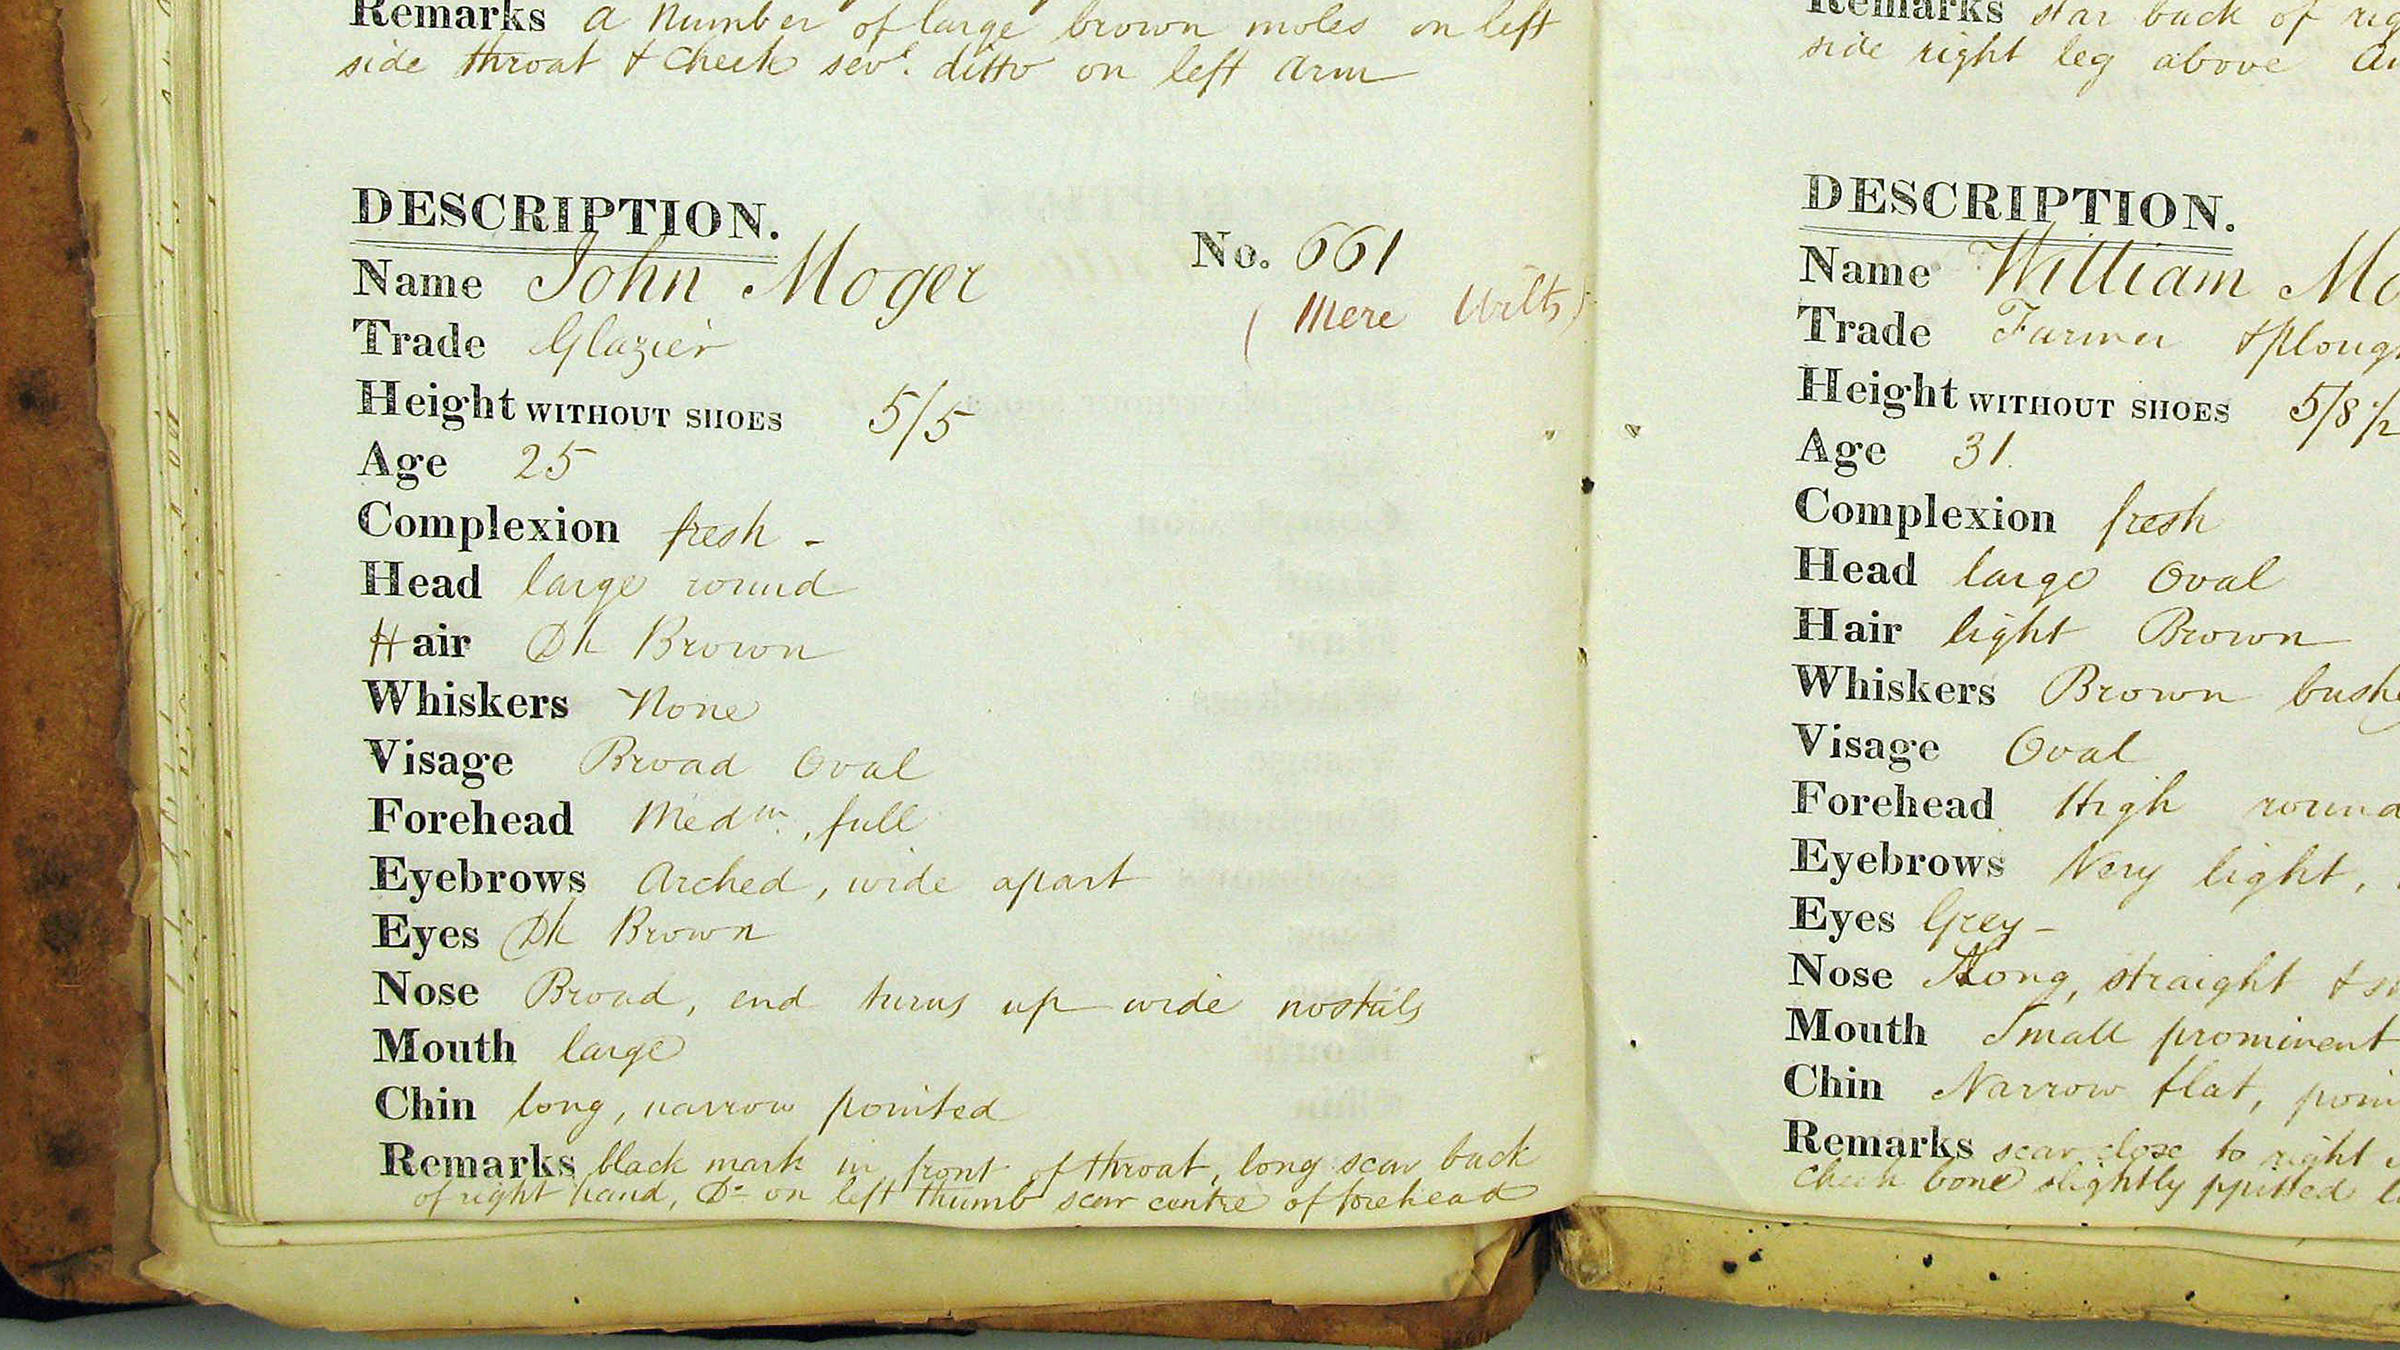 Remarks a number of large brown moles on left
side throat & cheek sevl. ditto on left arm
DESCRIPTION.
No. 661
Name John Moger
(Mere Wilts)
Trade Glazier
Height WITHOUT SHOES 5/5
Age 25
Complexion fresh -
Head large round
Hair Dk Brown
Whiskers None
Visage Broad Oval
Forehead Medm., full
Eyebrows Arched, wide apart
Eyes Dk Brown
Nose Broad, end turns up wide nostrils
Mouth large
Chin long, narrow pointed
Remarks black mark in front of throat, long scar back
of right hand, Do on left thumb scar centre of forehead
Remarks star back of rig
side right leg above
DESCRIPTION.
Name William Mo
Trade Farmer & Ploug
Height WITHOUT SHOES 5/8 1/2
Age 31.
Complexion fresh
Head large Oval
Hair light Brown
Whiskers Brown bushy
Visage Oval
Forehead High round
Eyebrows Very light,
Eyes Grey -
Nose Long, straight & s
Mouth Small prominent
Chin Narrow flat, poin
Remarks scar close to right
cheek bone slightly ppitted